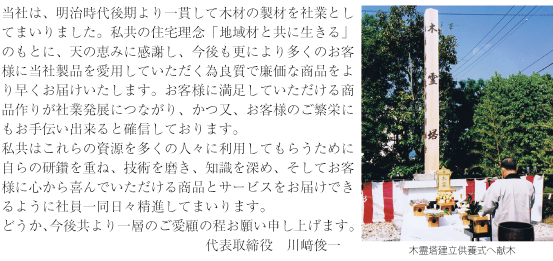 当社は、明治時代後期より一貫して木材の製材を社業とし
てまいりました。私共の住宅理念「地域材と共に生きる」
のもとに、天の恵みに感謝し、今後も更により多くのお客
様に当社製品を愛用していただく為良質で廉価な商品をよ
り早くお届けいたします。お客様に満足していただける商
品作りが社業発展につながり、かつ又、お客様のご繁栄に
もお手伝い出来ると確信しております。
私共はこれらの資源を多くの人々に利用してもらうために
自らの研鑽を重ね、技術を磨き、知識を深め、そしてお客
様に心から喜んでいただける商品とサービスをお届けでき
るように社員一同日々精進してまいります。
どうか、今後共より一層のご愛顧の程お願い申し上げます。
代表取締役　川﨑俊一
木霊塔
木霊塔建立供養式へ献木